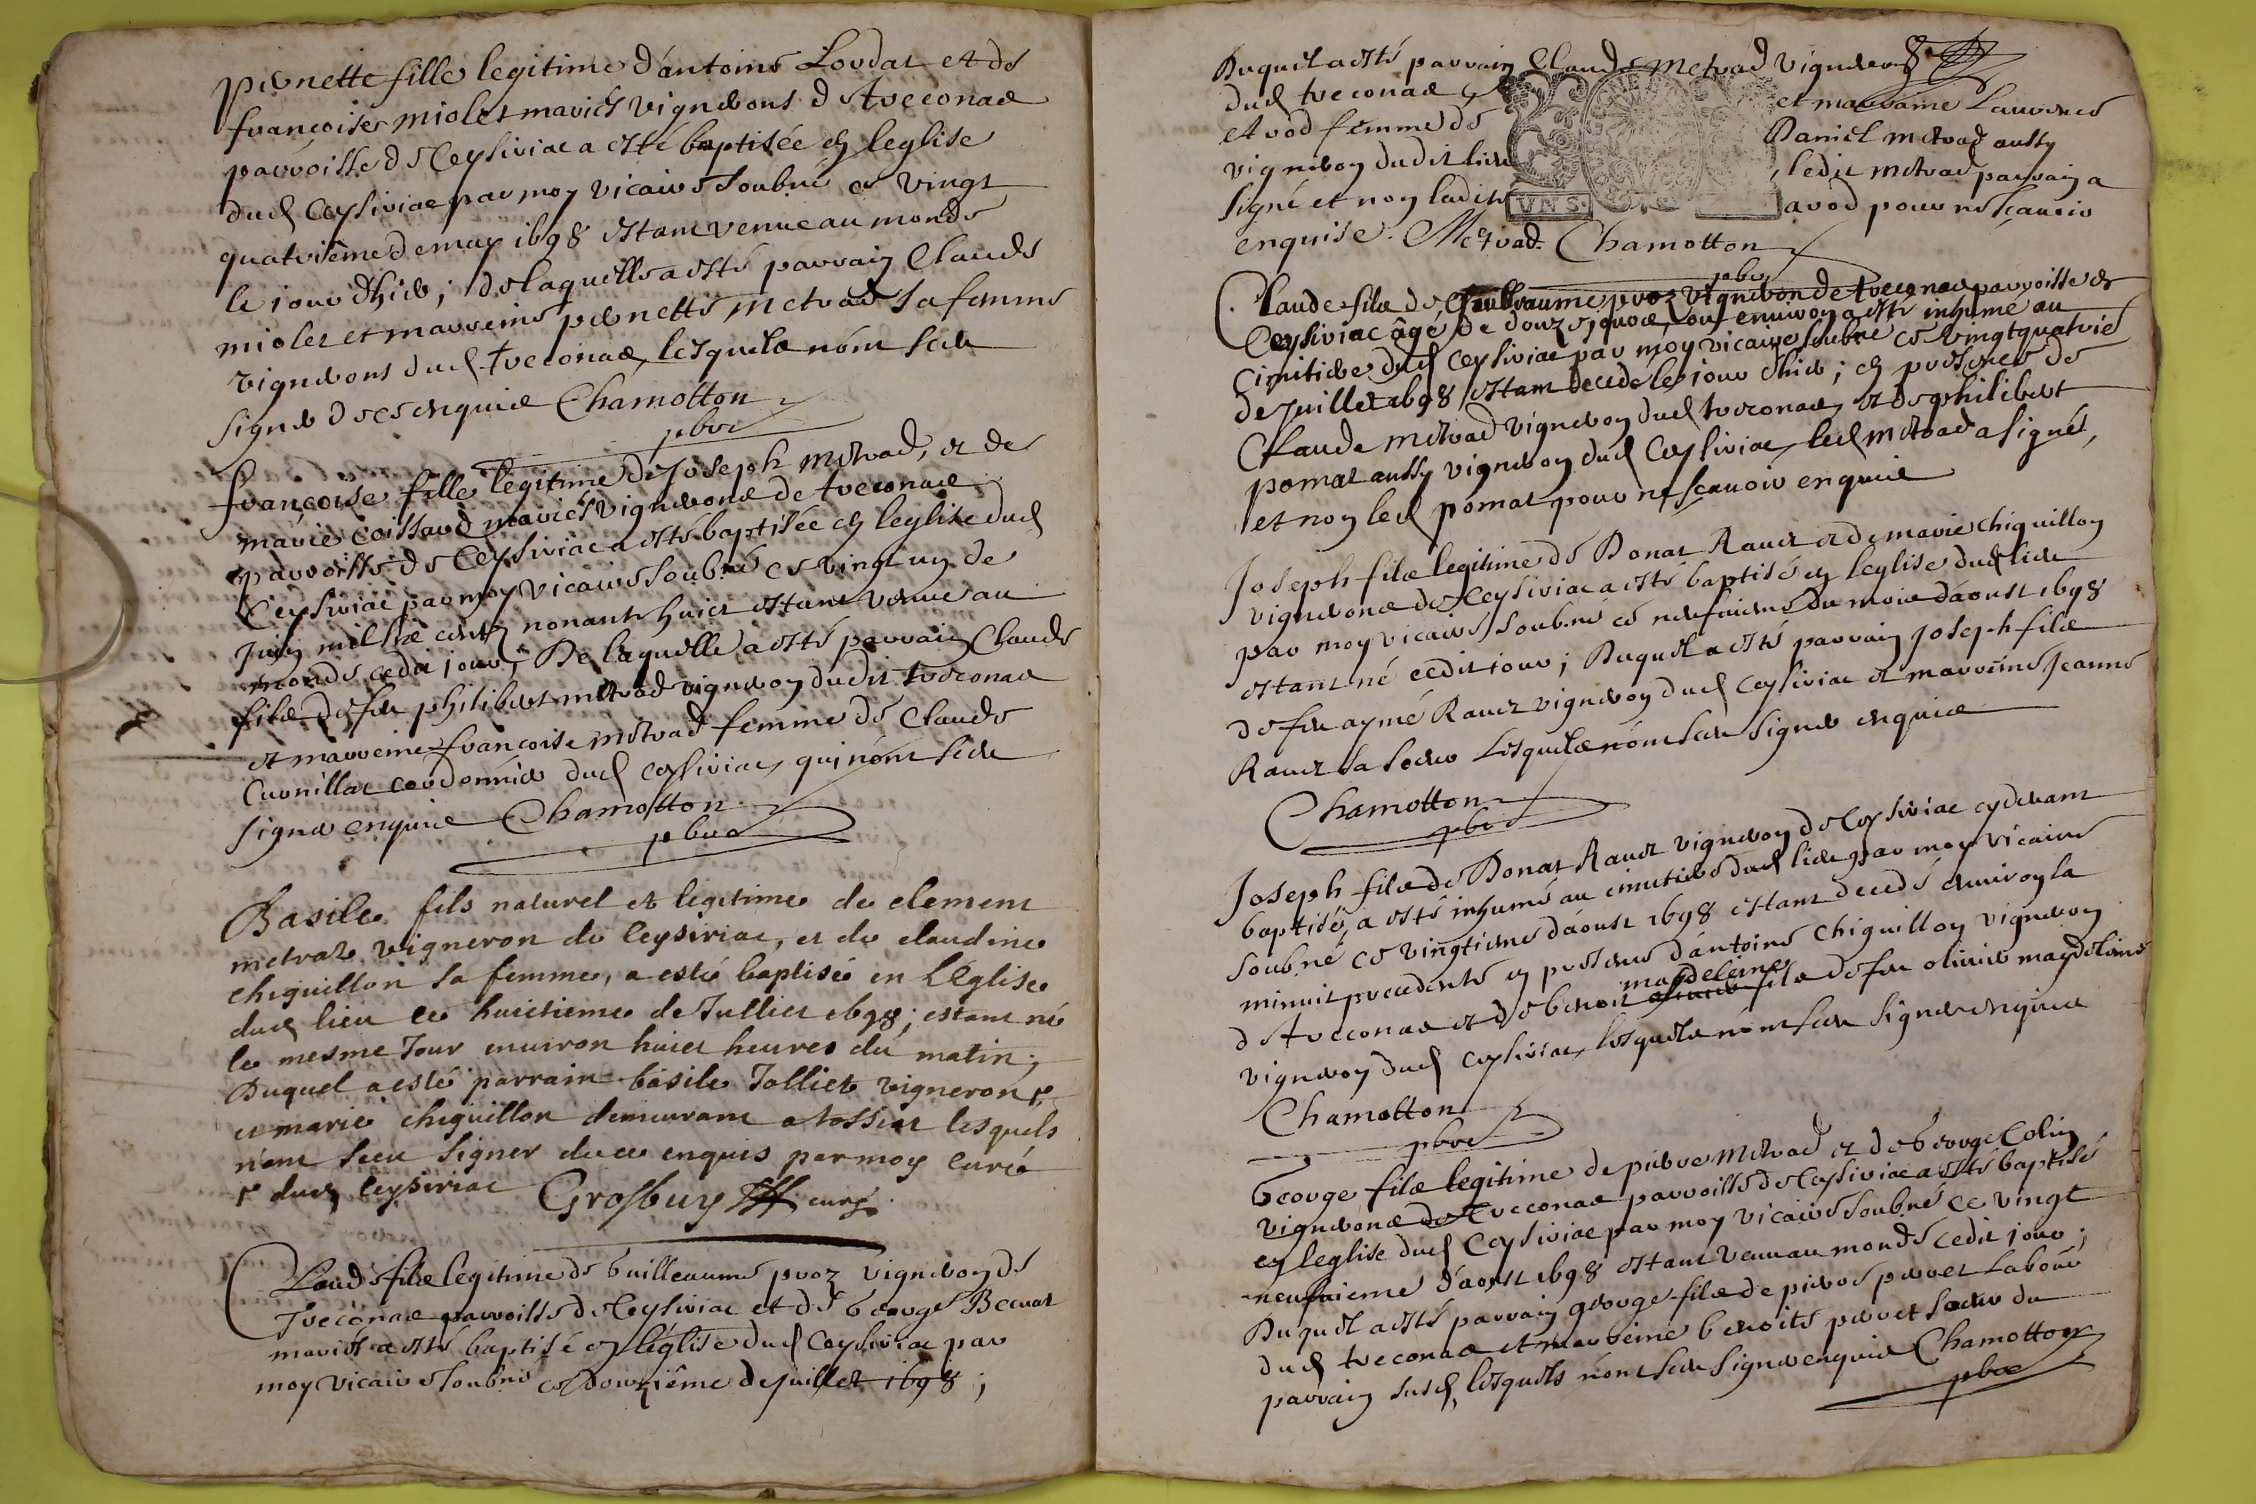 pernette fille legitime d'antoine Loudat et de
francoise miolet mariés vignerons de treconas
parroisse de Ceysiriac a esté baptisée en leglise
dud Ceysiriac par moy vicaire soubné ce vingt
quatrième de may 1698 estant venue au monde
le iour d'hier; de laquelle a esté parrain Claude
miolet et marreine pernette metrad sa femme
vignerons dud treconas, lesquels n'ont sceu
signer de ce enquis Chamotton
pbre
francoise fille legitime de Joseph metrad, et de
marie coissard mariés vignerons de treconas
parroisse de Ceysiriac a esté baptisée en leglise dud
Ceysiriac par moy vicaire soubné ce vingt un de
Juin mil six cents nonante huict estant venue au
monde cedit iour; De laquelle a esté parrain Claude
fils de feu philibert metrad vigneron dudit treconas
et marreine francoise metrad femme de Claude
Curnillat cordonnier dud ceysiriac, qui n'ont sceu
signer enquis Chamotton
pbre
Basile fils naturel et legitime de clement
metrat vigneron de Ceysiriac, et de claudine
chiquillon sa femme, a esté baptisé en L'Eglise
dud lieu ce huictieme de Jullict 1698; estant né
le mesme Jour enuiron huict heures du matin;
Duquel a esté parrain basile Jolliet vigneron +
et marie chiquillon demeurant a tossiat lesquels
n'ont sceu signer de ce enquis par moy curé
+ dud Ceysiriac Grosbuy curé
Claude fils legitime de Guilleaume proz vigneron de
Treconas parroisse de Ceysiriac et de George Becuat
mariés a esté baptisé en l'église dud Ceysiriac par
moy vicaire soubné ce douzième de juillet 1698;
Duquel a esté parrain Claude metrad vigneron
dud treconas, et marraine Laurence
avod femme de Daniel metrad aussy
vigneron dudit lieu, ledit metrad parrain a
signé et non ladite avod pour ne sçauoir
enquise. Metrad. Chamotton
pbre
Claude fils de Guilleaume proz vigneron de treconas parroisse de
Ceysiriac âgé de douze iours ou enuiron a esté inhumé au
cimitiere dud Ceysiriac par moy vicaire soubné ce vingtquatrie
de Juillet 1698 estant decedé le iour d'hier; en presence de
Claude metrad vigneron dud treconas, et de philibert
pomat aussy vigneron dud Ceysiriac, led metrad a signé,
et non led pomat pour ne sçauoir enquis
Joseph fils legitime de Donat Rauet et de marie chiquillon
vignerons de Ceysiriac a esté baptisé en leglise dud lieu
par moy vicaire soubné ce neufuieme du mois d'aoust 1698
estant né cedit iour; Duquel a esté parrain Joseph fils
de feu aymé Rauet vigneron dud Ceysiriac et marreine Jeanne
Rauet sa soeur Lesquels n'ont sceu signer enquis
Chamotton
pbre
Joseph fils de Donat Rauet vigneron de Ceysiriac cydeuant
baptisé, a esté inhumé au cimitiere dud lieu par moy vicaire
soubné ce vingtieme d'aoust 1698 estant decedé enuiron la
minuit precedente en presence d'antoine chiquillon vigneron
magdeleine
de treconas et de benoit fils de feu oliuier magdeleine
vigneron dud Ceysiriac, lesquels n'ont sceu signer enquis
Chamotton
pbre
George fils legitime de pierre metrad et de George Colin
vignerons de Treconas parroisse de Ceysiriac a esté baptisé
en leglise dud Ceysiriac par moy vicaire soubné ce vingt
neufuieme d'aoust 1698 estant venu au monde cedit iour;
Duquel a esté parrain george fils de pierre perret Labour
dud treconas et marreine benoite perret soeur du
parrain susd, lesquels n'ont sceu signer enquis Chamotton
pbre